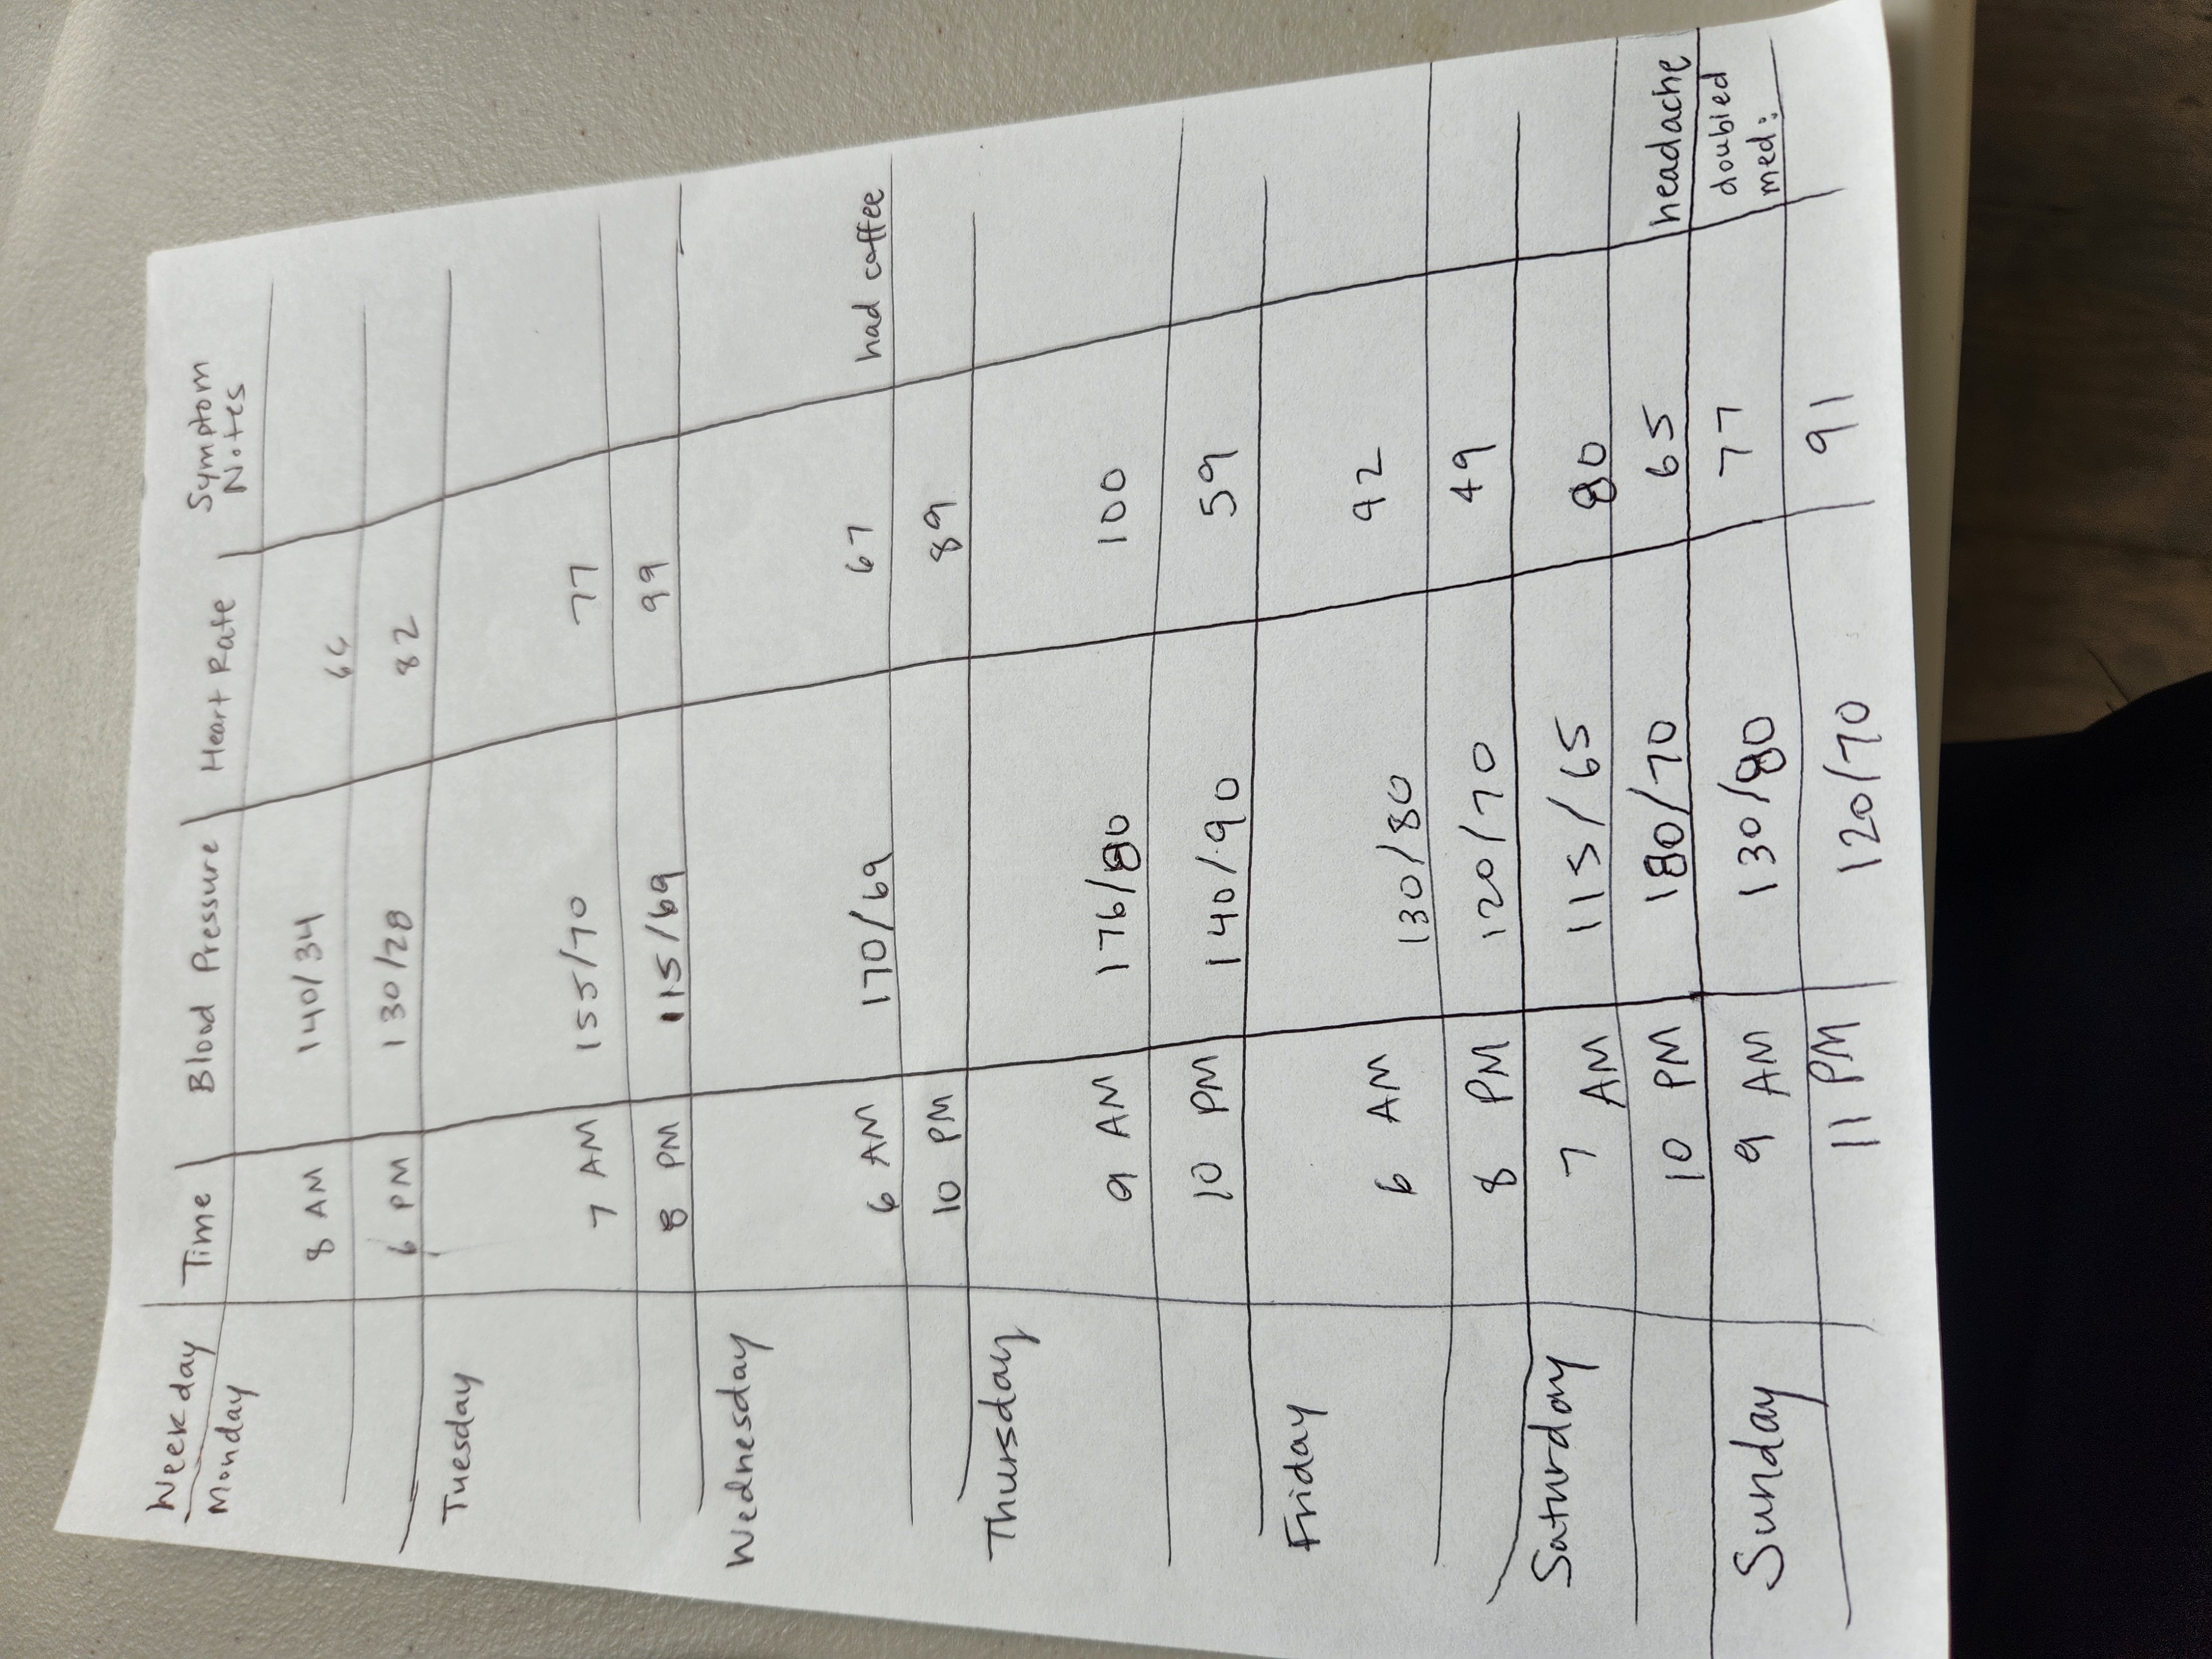 Weekday Time Blood Pressure Heart Rate Symptom Notes
Monday
8 AM 140/34
6 PM 130/28 82
Tuesday
7 AM 155/70 77
8 PM 115/69 99
Wednesday
6 AM 170/69 67 had coffee
10 PM 89
Thursday
9 AM 176/80 100
10 PM 140/90 59
Friday
6 AM 130/80 92
8 PM 120/70 49
Saturday 7 AM 115/65 80
10 PM 180/70 65 headache
Sunday 9 AM 130/80 77 doubled med:
11 PM 120/70 91